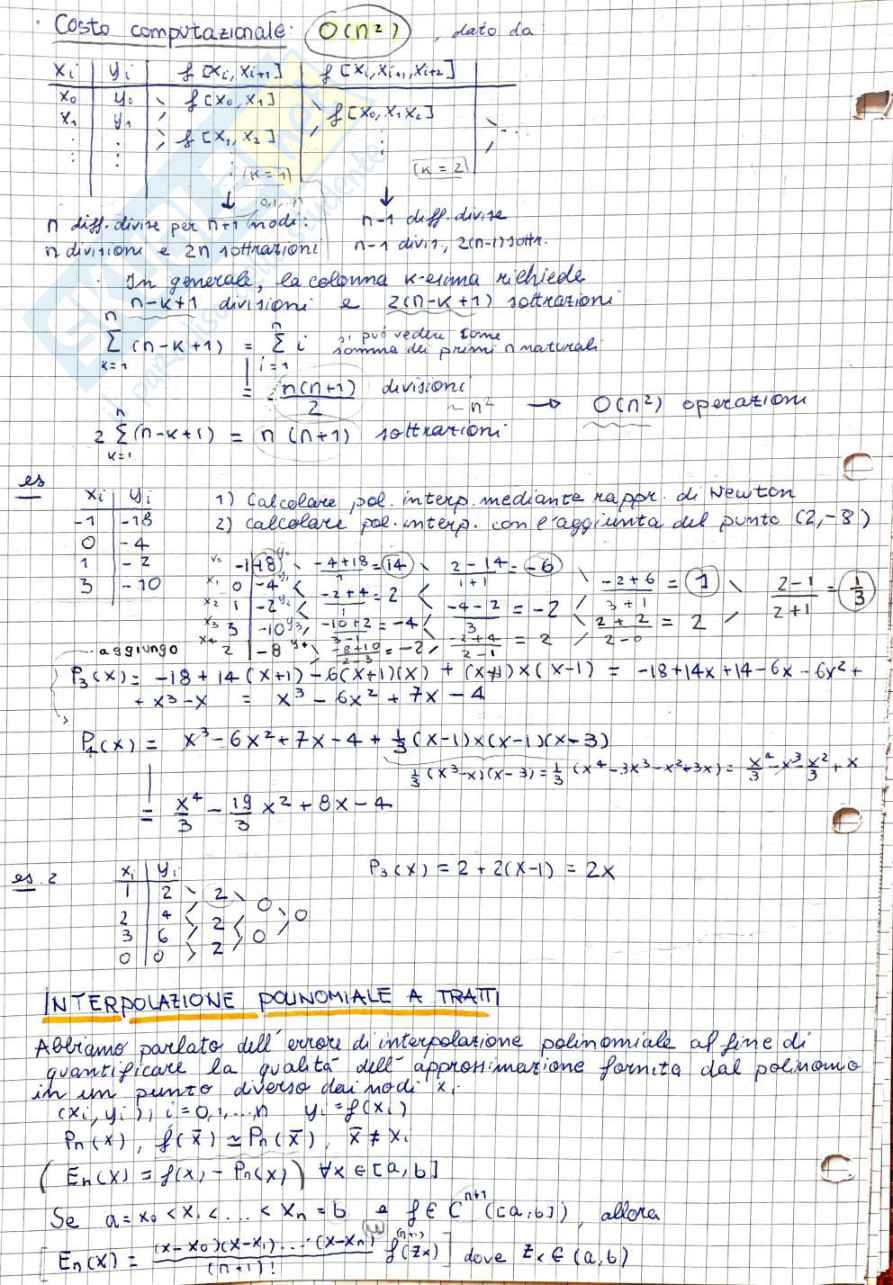 Costo computazionale: O(n²), dato da
xi | yi | f[xi, xi+1] | f[xi, xi+1, xi+2]
x0 | y0 | f[x0, x1] | f[x0, x1 x2] ...
x1 | y1
⋮ | ⋮ | f[x1, x2] | ⋮
⋮ (k=1) | (k=2)
n diff. divise per n+1 nodi: n-1 diff. divise
n divisioni e 2n sottrazioni n-1 divis., 2(n-1) sottr.
In generale, la colonna k-esima richiede
n-k+1 divisioni e 2(n-k+1) sottrazioni
n Σ k=1 (n-k+1) = n Σ i=1 i si può vedere come somma dei primi n naturali
= n(n+1)/2 divisioni
~ n² → O(n²) operazioni
2 n Σ k=1 (n-k+1) = n(n+1) sottrazioni
es
xi | yi 1) Calcolare pol. interp. mediante rappr. di Newton
-1 | -18 2) Calcolare pol. interp. con l'aggiunta del punto (2,-8)
0 | -4
1 | -2
3 | -10
x0 -1 -18 y0 (-4+18)/1 = 14 (2-14)/(1+1) = -6
x1 0 -4 y1 (-2+4)/1 = 2 (-2+6)/(3+1) = 1 (2-1)/(2+1) = 1/3
x2 1 -2 y2 (-4-2)/3 = -2
x3 3 -10 y3 (-10+2)/(3-1) = -4 (2+2)/(2-0) = 2
aggiungo x4 2 -8 y4 (-8+10)/(2-3) = -2 (-2+4)/(2-1) = 2
P3(x) = -18 + 14(x+1) - 6(x+1)(x) + (x+1)x(x-1) = -18+14x+14-6x-6x²+
+ x³-x = x³ - 6x² + 7x - 4
P4(x) = x³-6x²+7x-4 + 1/3(x-1)x(x-1)(x-3)
1/3(x³-x)(x-3) = 1/3(x⁴-3x³-x²+3x) = x⁴/3-x³-x²/3+x
= x⁴/3 - 19/3 x² + 8x - 4
es. 2
xi | yi P3(x) = 2 + 2(x-1) = 2x
1 | 2 2
2 | 4 0
3 | 6 2 0
0 | 0 2 0
INTERPOLAZIONE POLINOMIALE A TRATTI
Abbiamo parlato dell'errore di interpolazione polinomiale al fine di
quantificare la qualità dell'approssimazione fornita dal polinomo
in un punto diverso dai nodi xi
(xi, yi), i=0,1,...n yi = f(xi)
Pn(x), f(x̄) ≃ Pn(x̄), x̄ ≠ xi
(En(x) = f(x) - Pn(x)) ∀x ∈ [a,b]
Se a=x0<x1<...<xn=b e f ∈ Cⁿ⁺¹([a,b]), allora
[En(x) = (x-x0)(x-x1)...(x-xn)/(n+1)! f⁽ⁿ⁺¹⁾(zx)] dove zx ∈ (a,b)